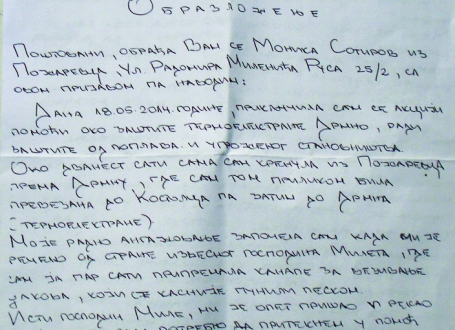 Образложење
Поштовани, обраћа Вам се Моника Сотиров из
Пожаревца, Ул. Радомира Миленића Руса 25/2, са
овом пријавом па наводим:
Дана 18.05.2014. године, прикључила сам се акцији
помоћи око заштите термоелектране Дрмно, ради
заштите од поплава и угроженог становништва.
Око дванест сати сама сам кренула из Пожаревца
према Дрмну, где сам том приликом била
превезана до Костолца па затим до Дрмна
(термоелектране)
Моје радно ангажовање започела сам када ми је
речено од стране извесног господина Милета, где
сам за пар сати припремала канапе за везивање
џакова, који се касније пуним песком.
Исти господин Миле, ми је опет пришао и рекао
потребно да притекнем у помоћ